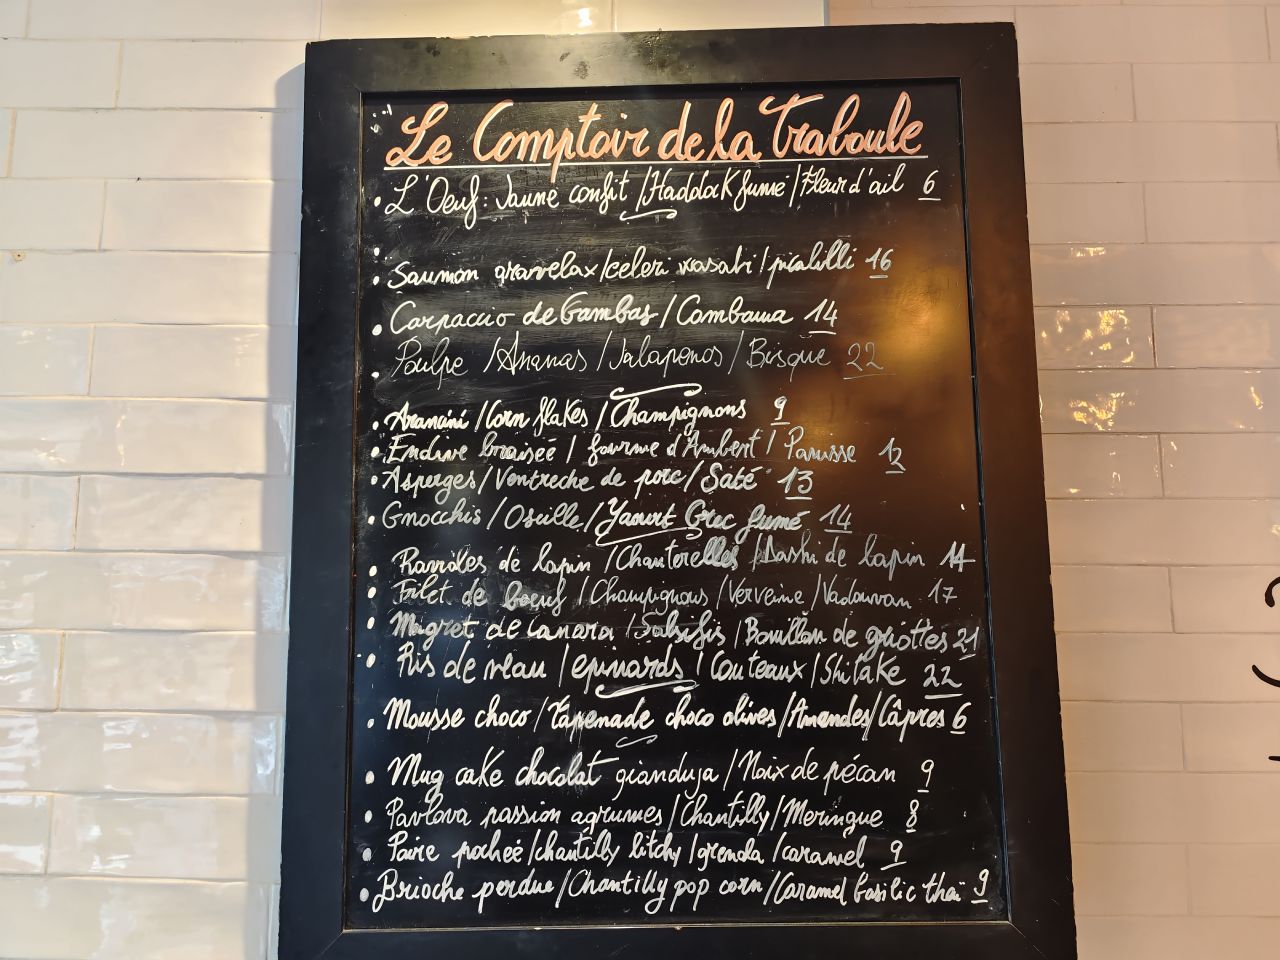 Le Comptoir de la Traboule
• L'Oeuf: Jaune confit / Haddock fumé / Fleur d'ail 6
• Saumon gravelax / celeri wasabi / picalilli 16
• Carpaccio de Gambas / Combawa 14
• Poulpe / Ananas / Jalapenos / Bisque 22
• Arancini / Corn flakes / Champignons 9
• Endive braisée / fourme d'Ambert / Panisse 12
• Asperges / Ventreche de porc / Saté 13
• Gnocchis / Oseille / Yaourt Grec fumé 14
• Ravioles de lapin / Chanterelles / Dashi de lapin 14
• Filet de boeuf / Champignons / Verveine / Vadouvan 17
• Magret de canard / Salsifis / Bouillon de griottes 21
• Ris de veau / epinards / Couteaux / Shitake 22
• Mousse choco / Tapenade choco olives / Amandes / Câpres 6
• Mug cake chocolat gianduja / Noix de pécan 9
• Pavlova passion agrumes / Chantilly / Meringue 8
• Poire pocheé / chantilly litchy / grenda / caramel 9
• Brioche perdue / Chantilly pop corn / Caramel basilic thaï 9